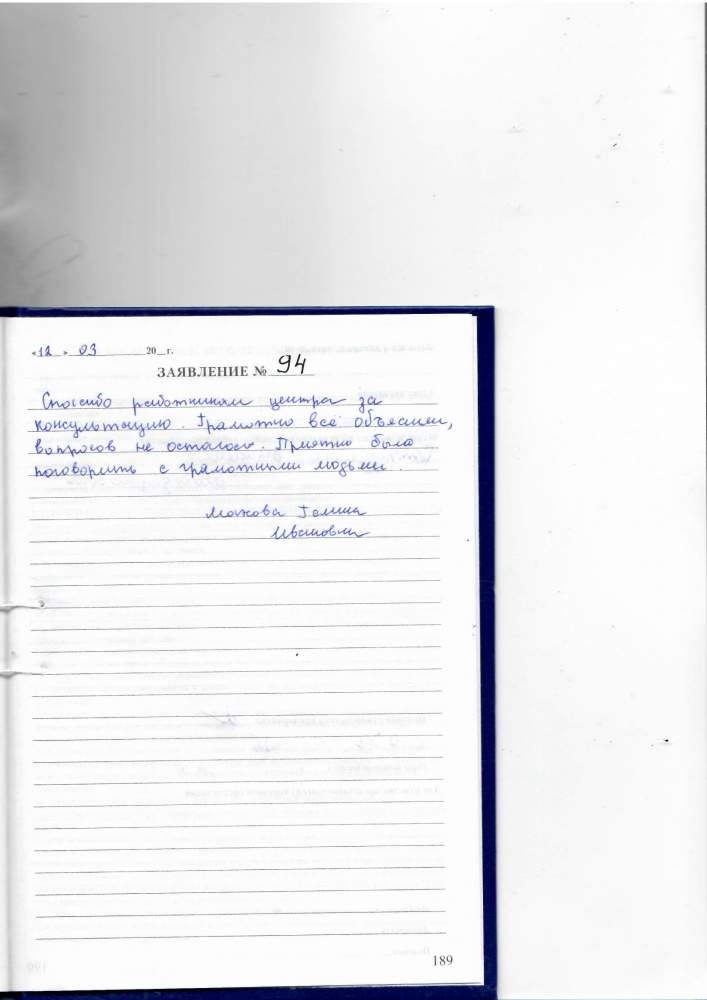 «12» 03 20__г.
ЗАЯВЛЕНИЕ № 94
Спасибо работникам центра за
консультацию. Грамотно всё объяснили,
вопросов не осталось. Приятно было
поговорить с грамотными людьми.
Галина
Ивановна
189